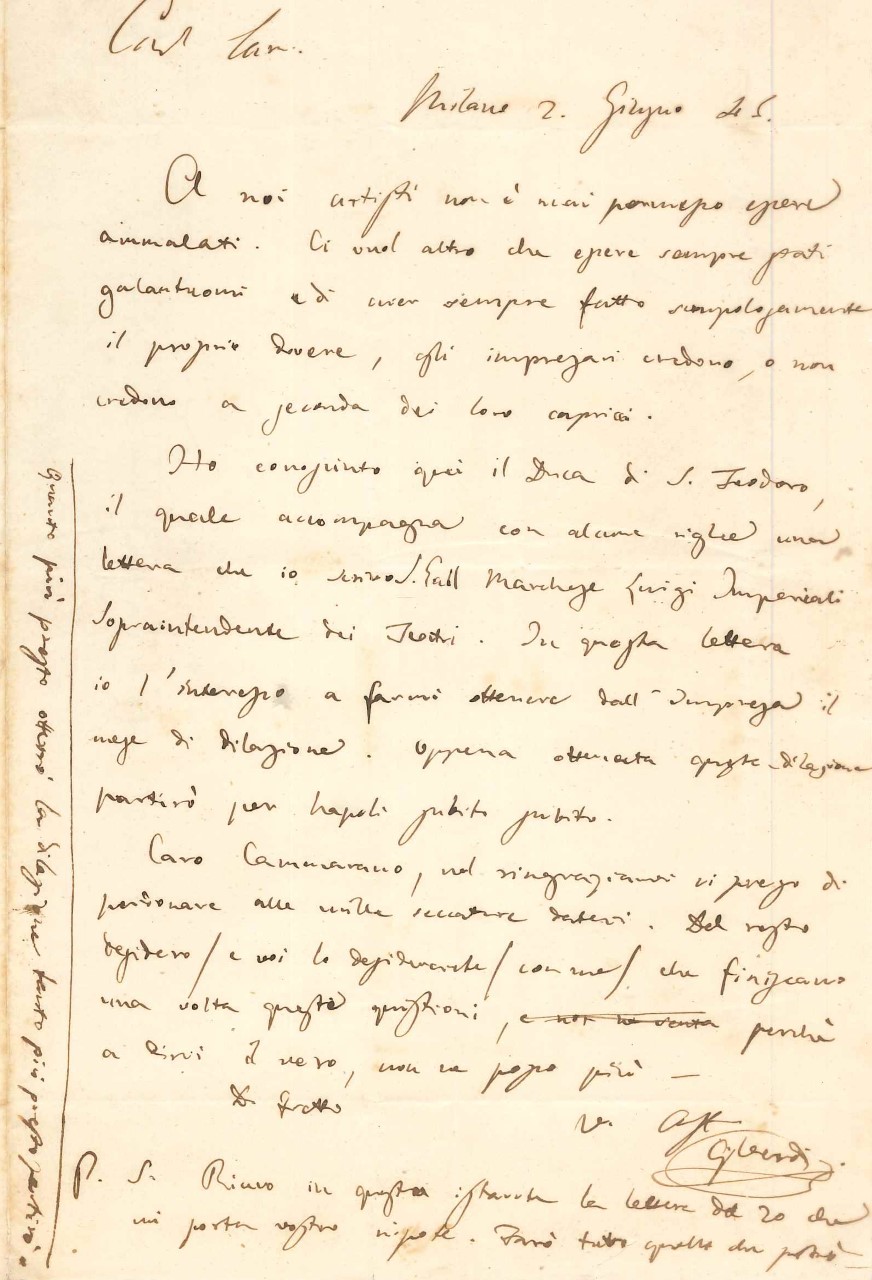 Car Cam.
Milano 2. Giugno 45.
A noi artisti non è mai permesso essere
ammalati. Ci vuol altro che essere sempre stati
galantuomi e di aver sempre fatto scrupolosamente
il proprio dovere, gli impresari credono, o non
credono a seconda dei loro capricci.
Ho conosciuto qui il Duca di S. Teodoro,
il quale accompagna con alcune righe una
lettera che io scrivo S. Ecc. Marchese Luigi Imperiali
Sopraintendente dei Teatri. In questa lettera
io l'interesso a farmi ottenere dall'Impresa il
mese di dilazione. Appena ottenuta questa dilazione
partirò per Napoli subito subito.
Caro Cammarano, nel ringraziarvi vi prego di
perdonare alle mille seccature datevi. Del resto
desidero / e voi lo desiderate / con me / che finiscano
una volta queste quistioni, perchè
a dirvi il vero, non ne posso più —
Di fretta
V. Aff.
G. Verdi.
P. S. Ricevo in questo istante la lettera del 20 che
mi porta vostro nipote. Farò tutto quello che potrò —
Quanto più presto otterrò la dilazione tanto più presto partirò.